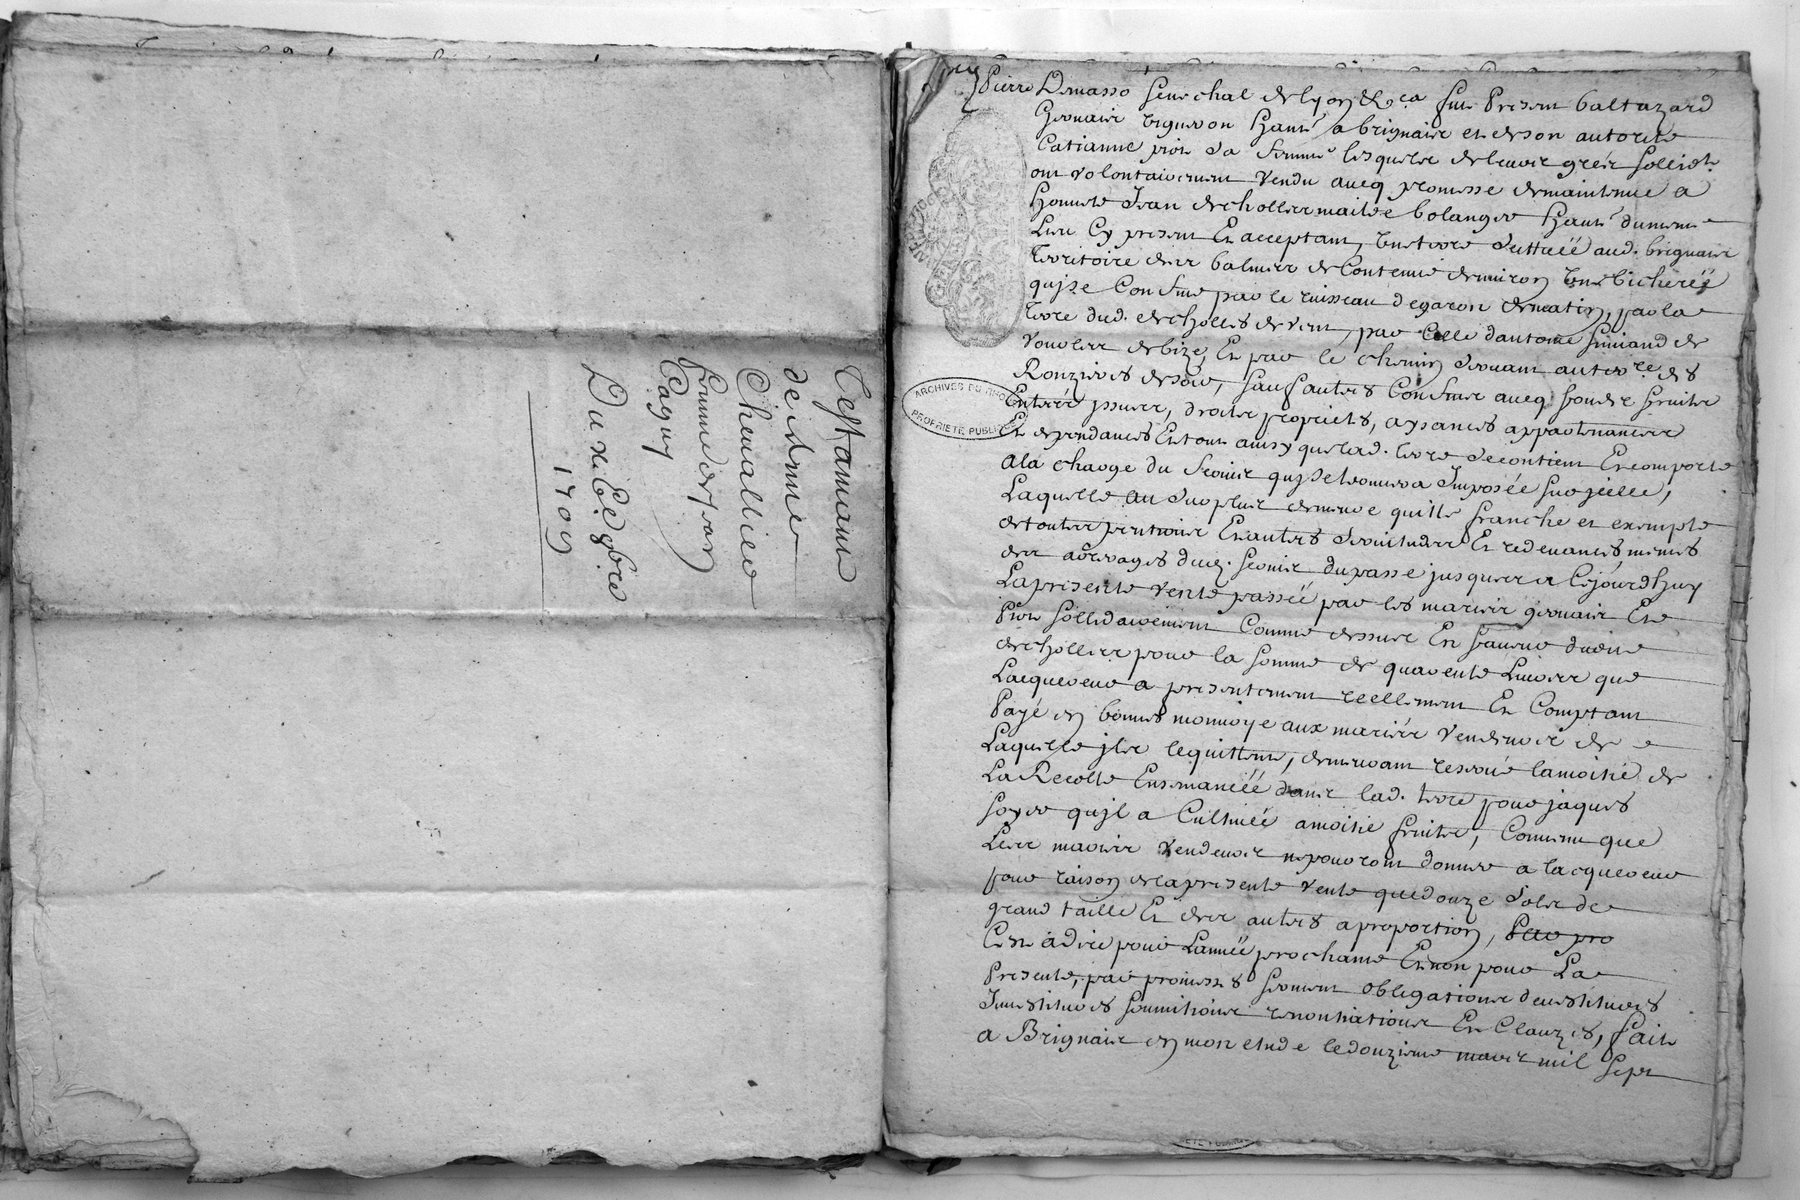 Testamant
de edme
Cheuallier
femme de jean
Pagny
Du xiE 8bre
1709
Pierre Demasso senechal de lyon &ca fut Present baltazard
Geruais vigneron hant a brignais et de son autorite
Catianne piot sa femme lesquels de leur gréér sollidt
ont volontairement Vendu aueq promesse de maintenue a
Honneste Jean dechollier maitre bolanger hant dumeme
Lieu Cy present Et acceptant, une terre scittuéé aud. brignais
Territoire des balmes de Contenue denuiron une bicheréé
quise Confine par le ruisseau de garon de matin, par la
terre dud. dechollés de vent, par Celle dantoine simiand de
Vourles de bize, Et par le chemin tirant au terre des
Ronzieres de soir, sauf autres Confins aueq fondz fruitz
Entréé yssuez, droitz proprietés, aysances appartenances
Et dependances Et tout ainsy que lad. terre se contient Et comporte
A la charge du seruis quise trouuera Imposée sur jcelle,
Laquelle au surplus demeure quitte franche et exempte
de toutes pentions Et autres seruitudes Et redeuances mêmes
des arrerages dud. seruis du passe jusques a Cejourdhuy
La presente vente passéé par les mariés geruais Et
Piot sollidairement Comme dessus En faueur dudit
dechollier pour la somme de quarente Liures que
Lacquereur a presentement reellement Et Comptant
Payé en bonnes monnoye aux mariés Vendeurs de
Laquelle jls le quittent, demeurant reserué la moitié de
La Recolte Ensemancéé dans lad. terre pour jaques
soyer quil a Cultiuéé a moitié fruitz, Conuenu que
Les mariés vendeurs ne pourront donner a lacquereur
pour raison de la presente vente que douze sols de
grand taille Et des autres a proportion, Par pro
C'est à dire pour L'annéé prochaine Et non pour La
Presente, par promesses serment obligations deuestitures
Inuestitures soumitions renontiations Et Clauzes, fait
a Brignais en mon etude le douzieme mars mil sept
ARCHIVES DU RHONE
PROPRIETE PUBLIQUE